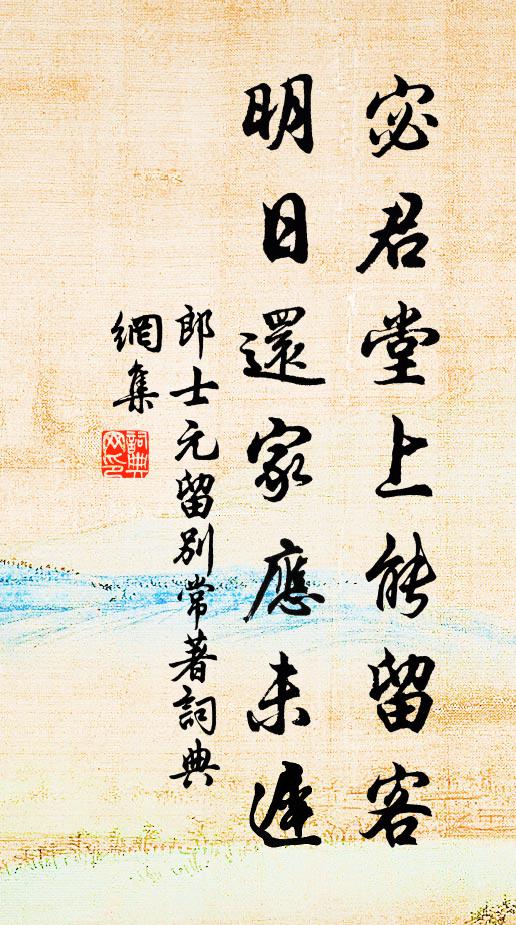 宓君堂上能留客
明日還家應未遲
郎士元留別常著詞典
網集
詞典
网印